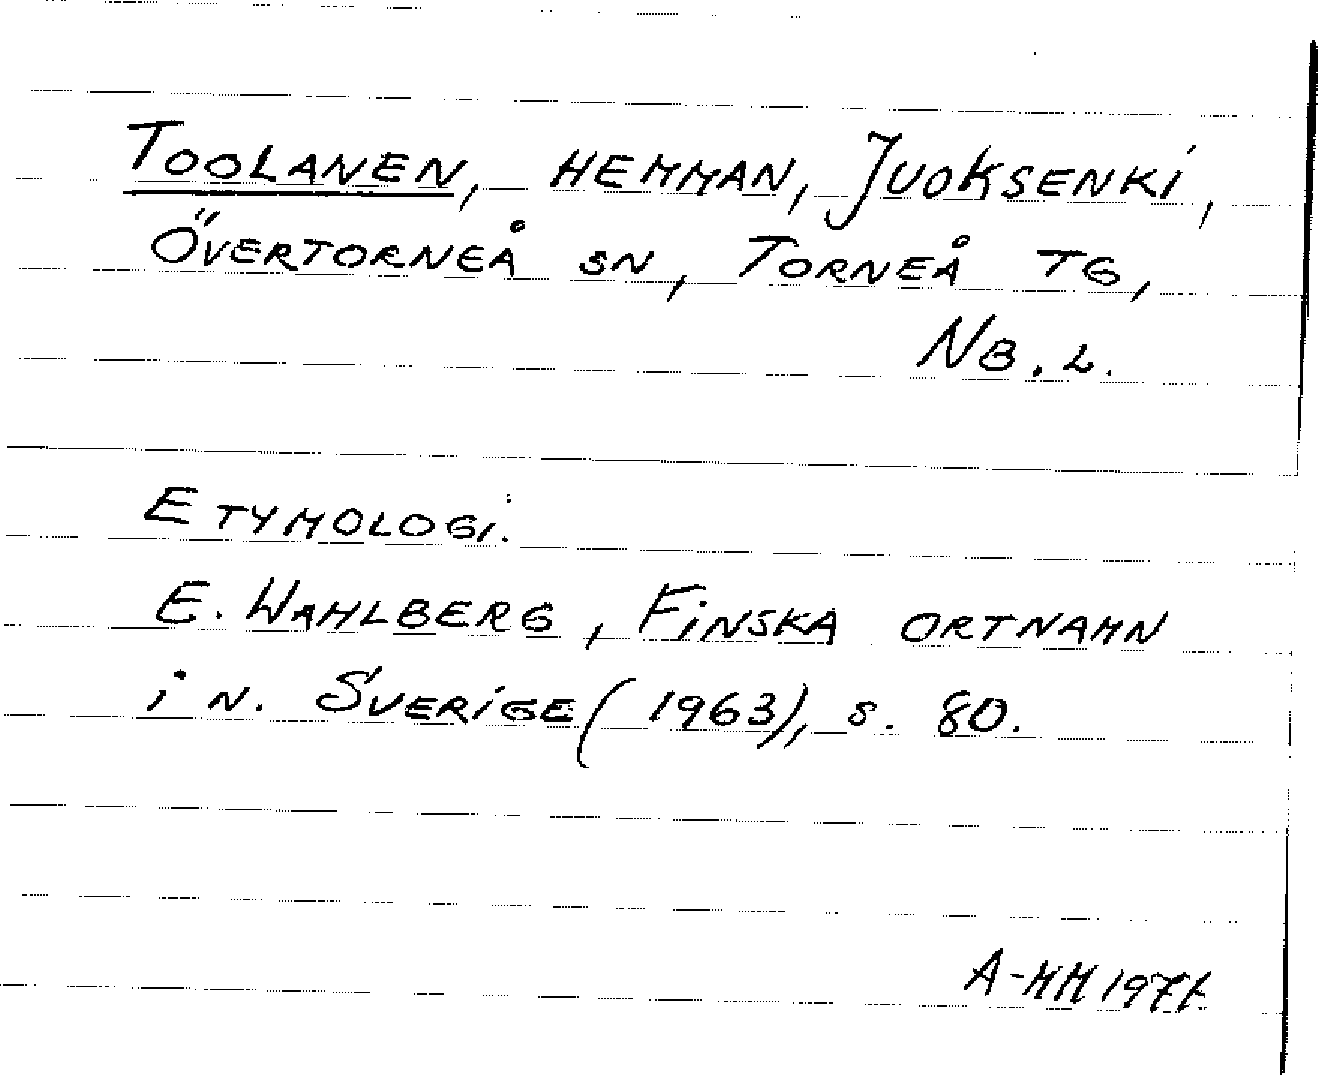 TOOLANEN, HEMMAN, JUOKSENKI,
ÖVERTORNEÅ SN, TORNEÅ TG,
NB.L.
ETYMOLOGI:
E. WAHLBERG, FINSKA ORTNAMN
i N. SVERIGE (1963), S. 80.
A-MM 1971.